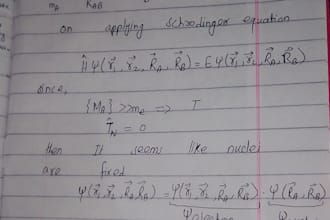 mA RAB
on applying Schrodinger equation
Ĥ ψ(r⃗₁, r⃗₂, R⃗A, R⃗B) = E ψ(r⃗₁, r⃗₂, R⃗A, R⃗B)
Since,
{MA} >> me ⇒ T
T̂N = 0
then It seems like nuclei
are fixed
ψ(r⃗₁, r⃗₂, R⃗A, R⃗B) = ψ(r⃗₁, r⃗₂, R⃗A, R⃗B) · ψ(R⃗A, R⃗B)